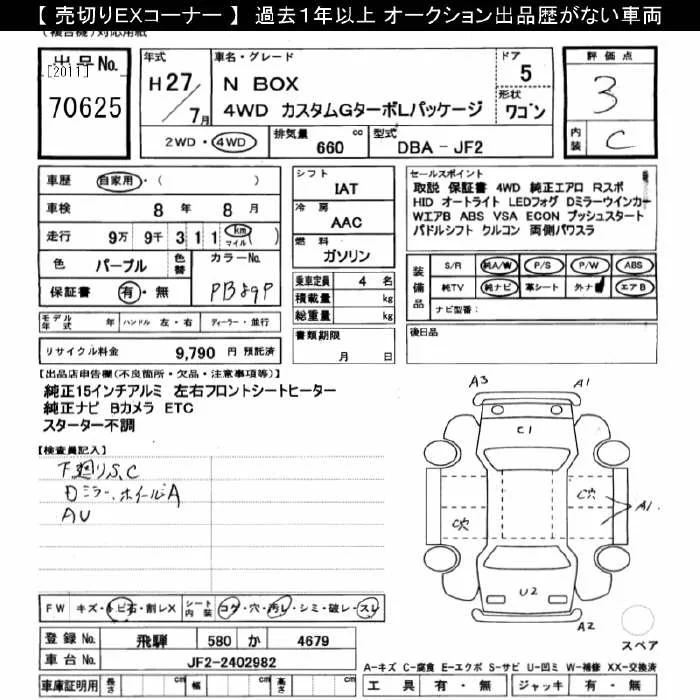 【 売切りEXコーナー 】 過去1年以上 オークション出品歴がない車両
(複合機)対応用紙
出品No.
[2011]
70625
年式
H27/7月
車名・グレード
N BOX
4WD カスタムGターボLパッケージ
ドア
5
形状
ワゴン
2WD・4WD
排気量 660 cc
型式 DBA - JF2
評価点
3
内装
C
車歴 自家用・( )
車検 8 年 8 月
走行 9万 9千 3 1 1 km マイル( )
色 パープル 色替 カラーNo.
保証書 有・無 PB89P
モデル年式 年 ハンドル 左・右 ディーラー・並行
リサイクル料金 9,790 円 預託済
シフト
IAT
冷房
AAC
燃料
ガソリン
乗車定員 4 名
積載量 kg
総重量 kg
書類期限
月 日
セールスポイント
取説 保証書 4WD 純正エアロ Rスポ
HID オートライト LEDフォグ Dミラーウインカー
WエアB ABS VSA ECON プッシュスタート
パドルシフト クルコン 両側パワスラ
装備品
S/R 純A/W P/S P/W ABS
純TV 純ナビ 革シート 外ナビ エアB
ナビ型番:
後日品
【出品店申告欄(不良箇所・欠品・注意事項等)】
純正15インチアルミ 左右フロントシートヒーター
純正ナビ Bカメラ ETC
スターター不調
【検査員記入】
下廻りS、C
Dミラー、ホイールA
AU
A3
A1
C1
C穴
C穴
A1
U2
A2
スペア
FW キズ・トビ石・割レX シート内装 コゲ・穴・汚レ・シミ・破レ・スレ
登録No. 飛騨 580 か 4679
車台No. JF2-2402982
車庫証明用 長さ cm 幅 cm 高さ cm
A-キズ C-腐食 E-エクボ S-サビ U-凹ミ W-補修 XX-交換済
工具 有・無 ジャッキ 有・無